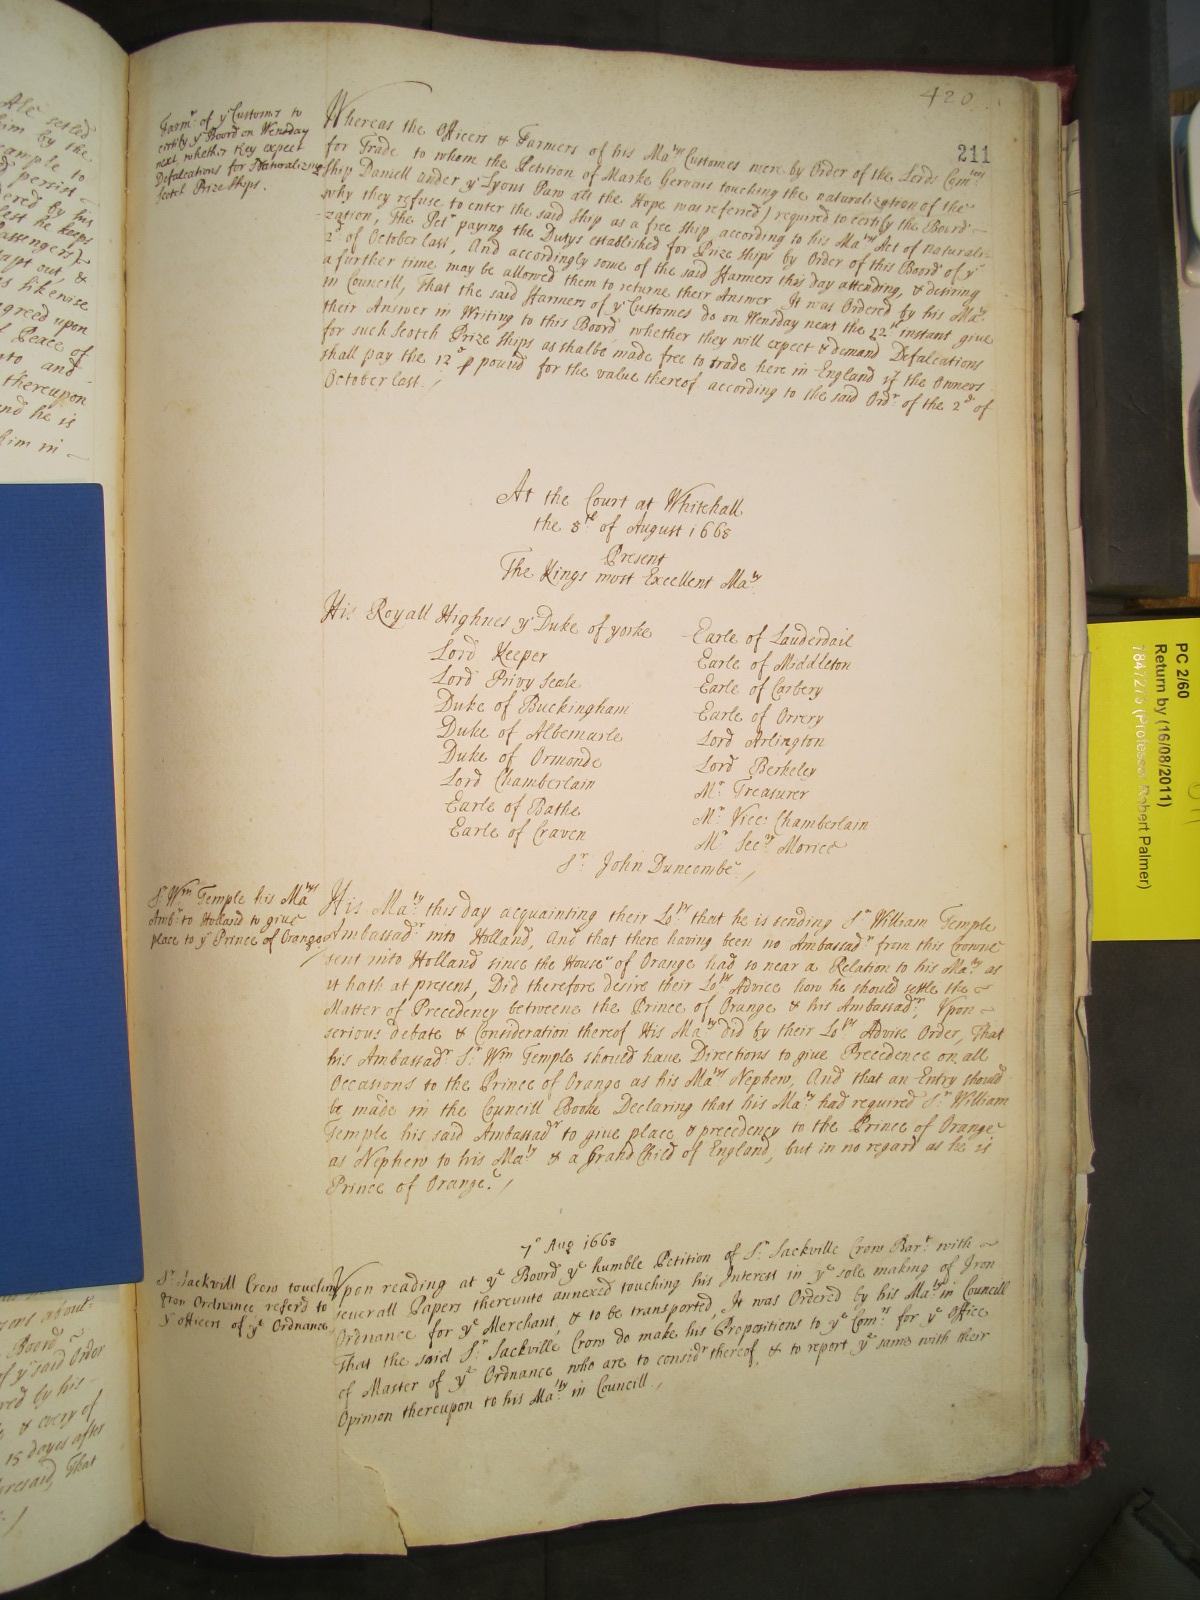 420
211
Farm.rs of ye Customs to
certify ye Board on Wensday
next whether they expect
Defalcations for Naturalizing
Scotch Prize Ships.
Whereas the Officers & Farmers of his Ma.ts Customes were by Order of the Lords Com.rs
for Trade to whom the Petition of Marke Gervais touching the naturalization of the
Ship Daniell under ye Lyons Paw als the Hope was referred) required to certify the Board
why they refuse to enter the said Ship as a free ship according to his Ma.ts Act of Naturali-
-zation, the Pet.r paying the Dutys established for Prize Ships by Order of this Board of ye
2d of October last, And accordingly some of the said Farmers this day attending, & desiring
a further time may be allowed them to returne their Answer It was Ordered by his Ma.ty
in Councill, That the said Farmers of ye Customes do on Wensday next the 12th instant give
their Answer in Writing to this Board whether they will expect & demand Defalcations
for such Scotch Prize Ships as shalbe made free to trade here in England if the Owners
shall pay the 12d p pound for the value thereof according to the said Ord.r of the 2d of
October last.
At the Court at Whitehall
the 8th of August 1668
Present
The Kings most Excellent Ma.ty
His Royall Highnes ye Duke of yorke
Earle of Lauderdail
Lord Keeper
Earle of Middleton
Lord Privy Seale
Earle of Carbery
Duke of Buckingham
Earle of Orrery
Duke of Albemarle
Lord Arlington
Duke of Ormonde
Lord Berkeley
Lord Chamberlain
Mr. Treasurer
Earle of Bathe
Mr. Vice: Chamberlain
Earle of Craven
Mr. Sec.ry Morice
Sr. John Duncombe
Sr. Wm. Temple his Ma.ts
Amb.r to Holland to give
place to ye Prince of Orange
His Ma.ty this day acquainting their Lo.pps that he is sending Sr. William Temple
Ambassad.r into Holland, And that there having been no Ambassad.r from this Crowne
sent into Holland since the House of Orange had so near a Relation to his Ma.ty as
it hath at present, Did therefore desire their Lo.pps Advice how he should settle the
Matter of Precedency betweene the Prince of Orange & his Ambassad.r, Vpon
serious debate & Consideration thereof His Ma.ty did by their Lo.pps Advise Order, That
his Ambassad.r Sr. Wm Temple should have Directions to give Precedence on all
Occasions to the Prince of Orange as his Ma.ts Nephew, And that an Entry should
be made in the Councill Booke Declaring that his Ma.ty had required Sr. William
Temple his said Ambassad.r to give place & precedency to the Prince of Orange
as Nephew to his Ma.ty & a Grand Child of England, but in no regard as he is
Prince of Orange.
7o Aug 1668
Sr. Sackvill Crow touching
Iron Ordnance referd to
ye officers of ye Ordnance
Vpon reading at ye Board ye humble Petition of Sr. Sackville Crow Bar.t with
severall Papers thereunto annexed touching his Interest in ye sole making of Iron
Ordnance for ye Merchant, & to be transported, It was Ordered by his Ma.ty in Councill
That the said Sr. Sackville Crow do make his Propositions to ye Com.rs for ye Office
of Master of ye Ordnance who are to consid.r thereof, & to report ye same with their
Opinion thereupon to his Ma.ty in Councill.
PC 2/60
Return by (16/08/2011)
(Professor Robert Palmer)